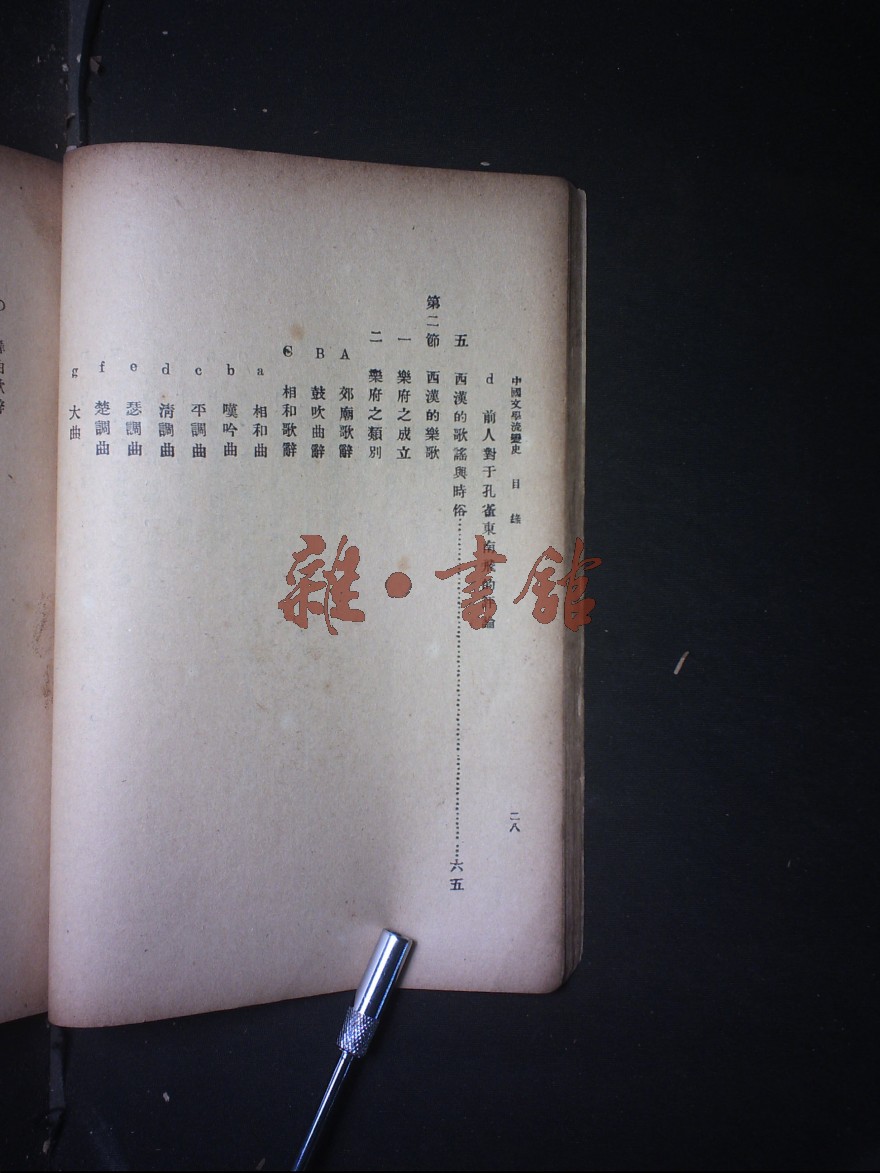 中國文學流變史 目錄 二八
d 前人對于孔雀東南飛的評論
五 西漢的歌謠與時俗……六五
第二節 西漢的樂歌
一 樂府之成立
二 樂府之類別
A 郊廟歌辭
B 鼓吹曲辭
C 相和歌辭
a 相和曲
b 嘆吟曲
c 平調曲
d 清調曲
e 瑟調曲
f 楚調曲
g 大曲
雜·書館